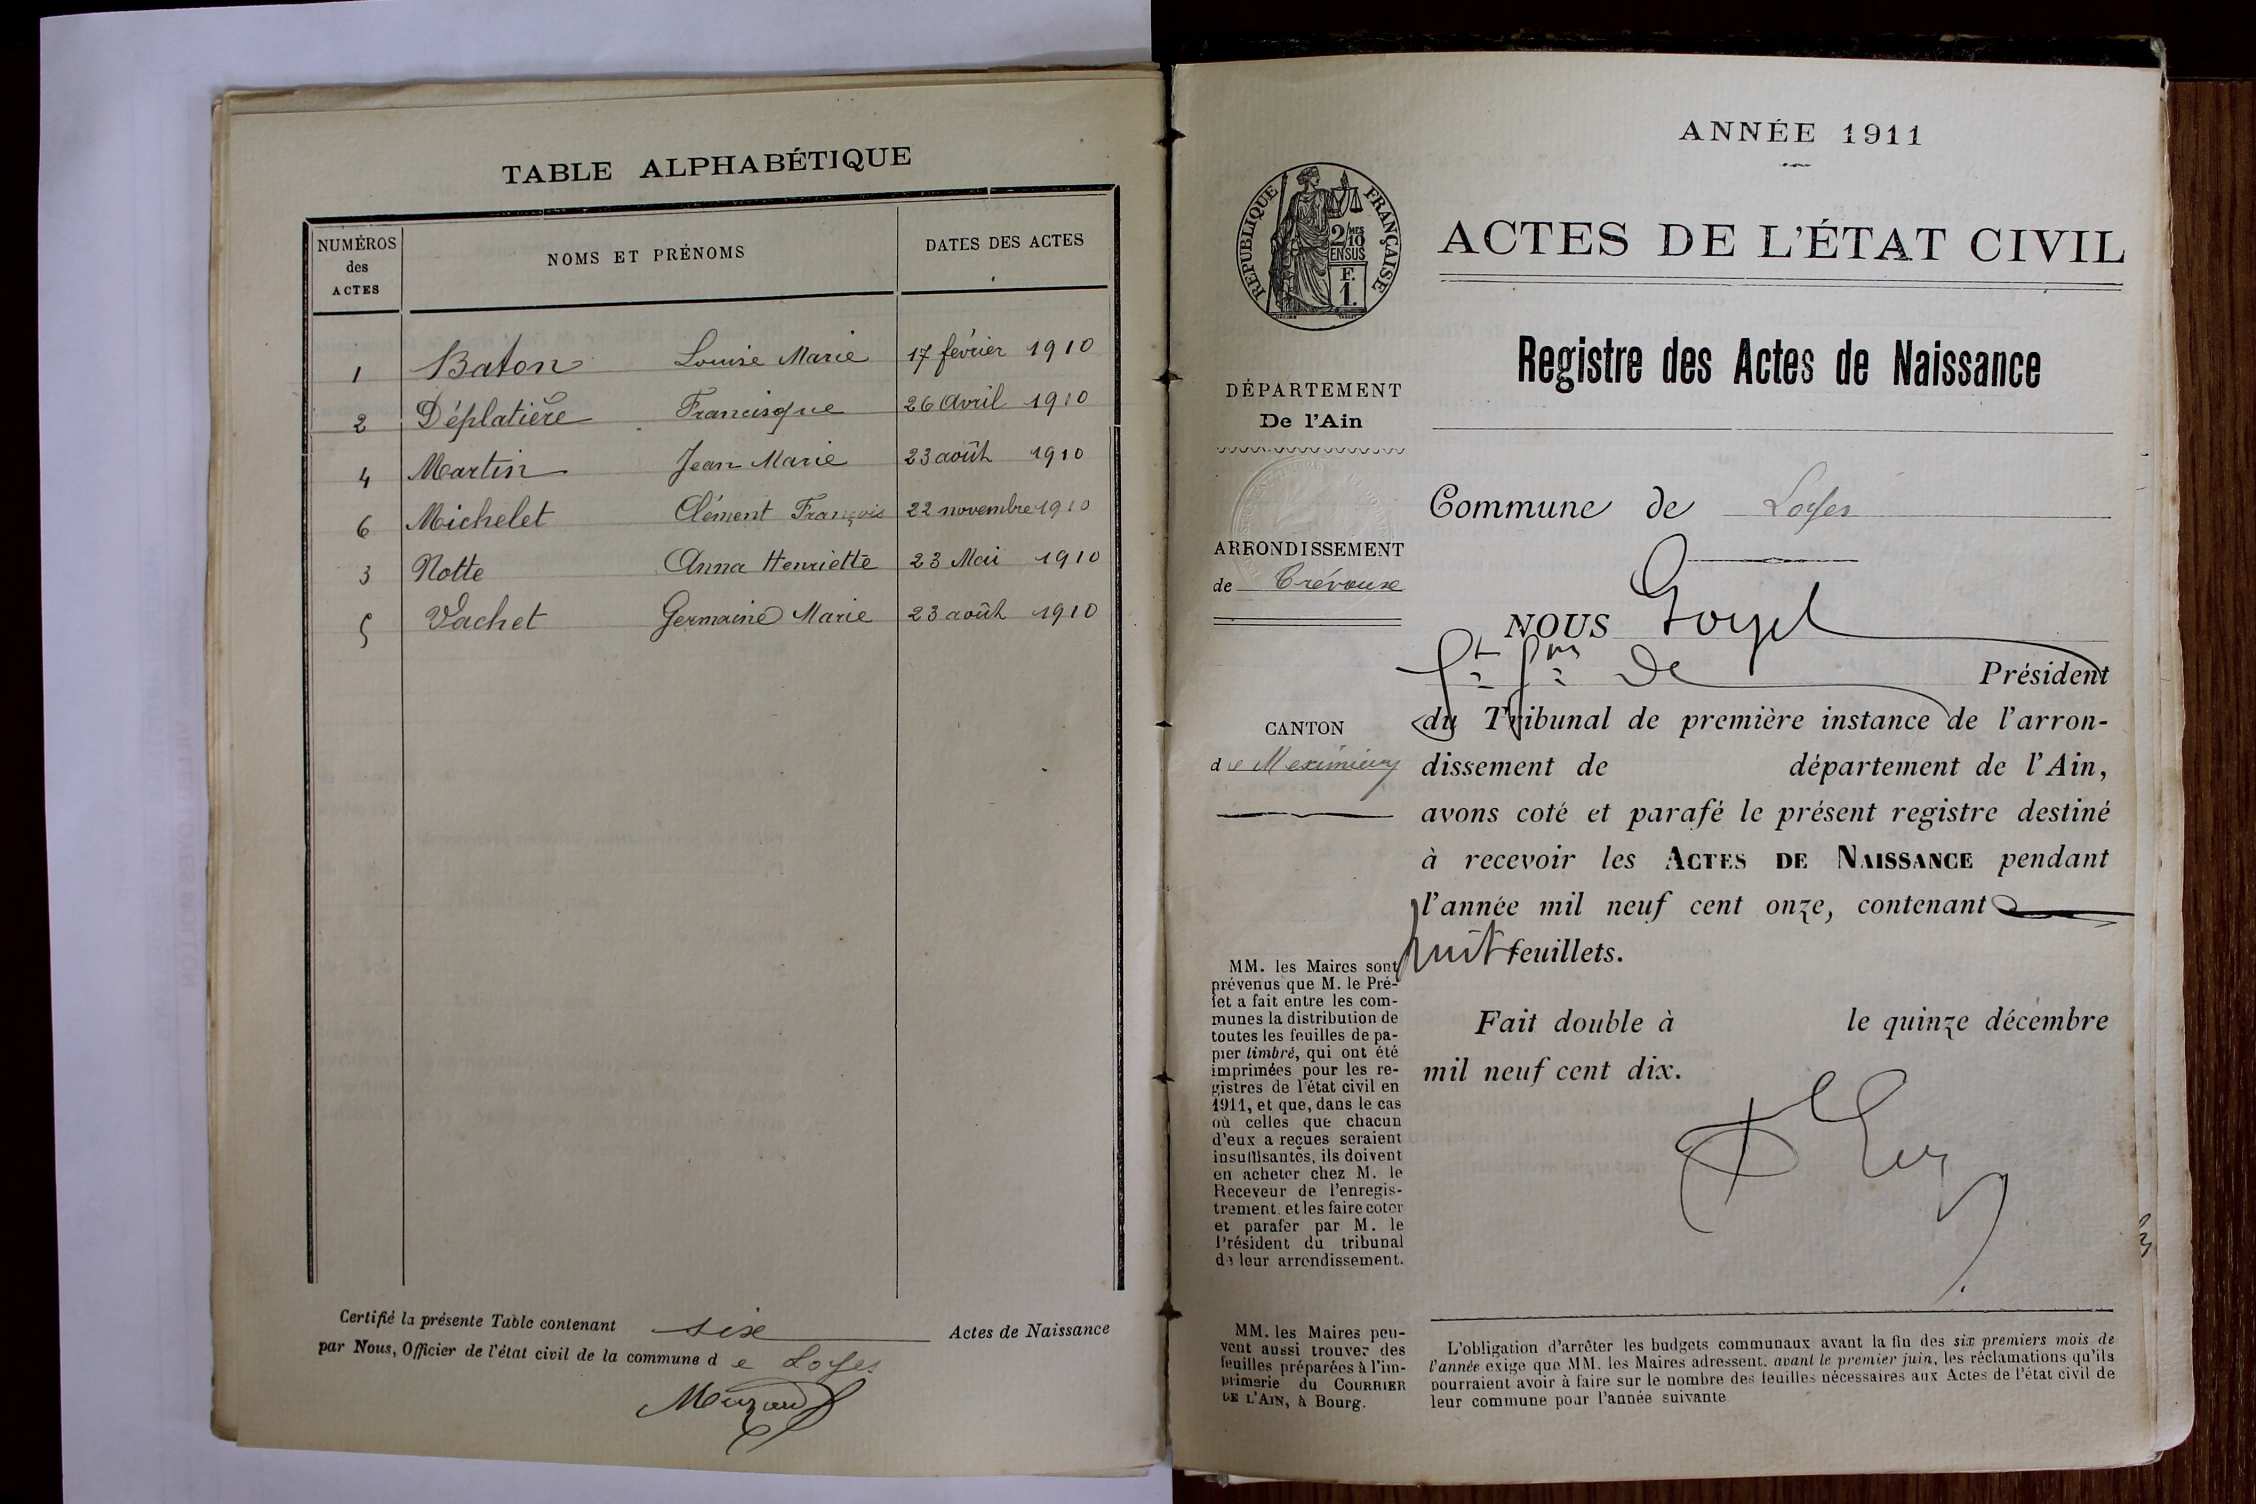 TABLE ALPHABÉTIQUE
NUMÉROS des ACTES
NOMS ET PRÉNOMS
DATES DES ACTES
1 Baton Louise Marie 17 février 1910
2 Déplatière Francisque 26 Avril 1910
4 Martin Jean Marie 23 août 1910
6 Michelet Clément François 22 novembre 1910
3 Notte Anna Henriette 23 Mai 1910
5 Vachet Germaine Marie 23 août 1910
Certifié la présente Table contenant six Actes de Naissance
par Nous, Officier de l'état civil de la commune de Loyes
ANNÉE 1911
RÉPUBLIQUE FRANÇAISE
2/10 MES
EN SUS
F.
1.
ACTES DE L'ÉTAT CIVIL
Registre des Actes de Naissance
DÉPARTEMENT
De l'Ain
ARRONDISSEMENT
de Trévoux
CANTON
de Meximieux
MM. les Maires sont
prévenus que M. le Pré-
fet a fait entre les com-
munes la distribution de
toutes les feuilles de pa-
pier timbré, qui ont été
imprimées pour les re-
gistres de l'état civil en
1911, et que, dans le cas
où celles que chacun
d'eux a reçues seraient
insuffisantes, ils doivent
en acheter chez M. le
Receveur de l'enregis-
trement, et les faire coter
et parafer par M. le
Président du tribunal
de leur arrondissement.
MM. les Maires peu-
vent aussi trouver des
feuilles préparées à l'im-
primerie du COURRIER
DE L'AIN, à Bourg.
Commune de Loyes
NOUS
de Président
du Tribunal de première instance de l'arron-
dissement de département de l'Ain,
avons coté et parafé le présent registre destiné
à recevoir les ACTES DE NAISSANCE pendant
l'année mil neuf cent onze, contenant
huit feuillets.
Fait double à le quinze décembre
mil neuf cent dix.
L'obligation d'arrêter les budgets communaux avant la fin des six premiers mois de
l'année exige que MM. les Maires adressent, avant le premier juin, les réclamations qu'ils
pourraient avoir à faire sur le nombre des feuilles nécessaires aux Actes de l'état civil de
leur commune pour l'année suivante